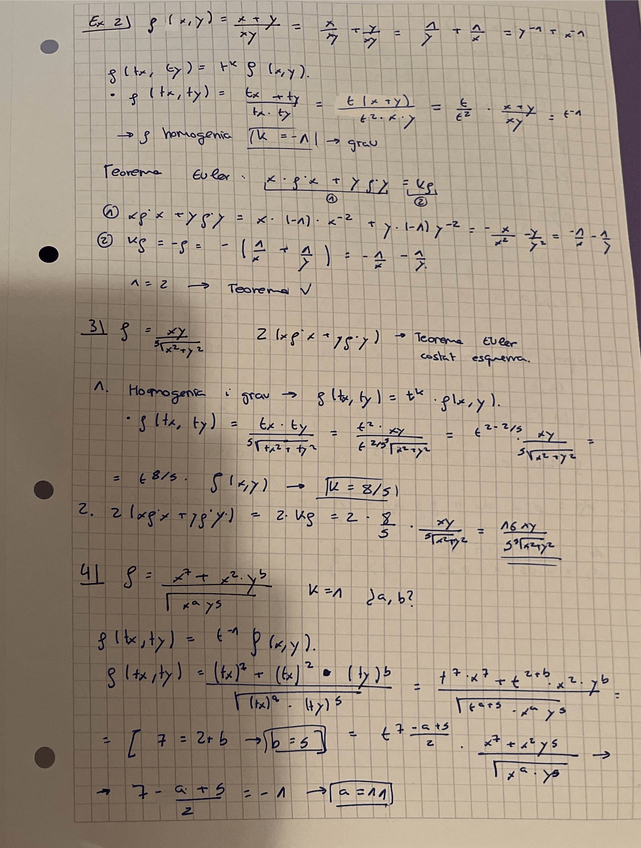 Ex 2) f(x,y) = \frac{x+y}{xy} = \frac{x}{xy} + \frac{y}{xy} = \frac{1}{y} + \frac{1}{x} = y^{-1} + x^{-1}
f(tx, ty) = t^k f(x,y).
• f(tx, ty) = \frac{tx + ty}{tx · ty} = \frac{t(x+y)}{t^2 · x · y} = \frac{t}{t^2} · \frac{x+y}{xy} = t^{-1}
→ f homogenia |k = -1| → grau
Teorema Euler: x · f'x + y f'y = kf
① ②
① xf'x + yf'y = x · (-1) · x^{-2} + y · (-1) y^{-2} = -\frac{x}{x^2} - \frac{y}{y^2} = -\frac{1}{x} - \frac{1}{y}
② kf = -f = -(\frac{1}{x} + \frac{1}{y}) = -\frac{1}{x} - \frac{1}{y}
1 = 2 → Teorema V
3) f = \frac{xy}{\sqrt[5]{x^2+y^2}} 2(xf'x + yf'y) → Teorema Euler
costat esquerra.
1. Homogenia i grau → f(tx, ty) = t^k · f(x, y).
• f(tx, ty) = \frac{tx · ty}{\sqrt[5]{tx^2 + ty^2}} = \frac{t^2 · xy}{t^{2/5} \sqrt[5]{x^2+y^2}} = t^{2-2/5} · \frac{xy}{\sqrt[5]{x^2+y^2}} =
= t^{8/5} · f(x,y) → |k = 8/5|
2. 2(xf'x + yf'y) = 2 · kf = 2 · \frac{8}{5} · \frac{xy}{\sqrt[5]{x^2+y^2}} = \frac{16xy}{5\sqrt[5]{x^2+y^2}}
4) f = \frac{x^7 + x^2 · y^b}{\sqrt{x^a y^5}} k = -1 ¿a, b?
f(tx, ty) = t^{-1} f(x,y).
f(tx, ty) = \frac{(tx)^7 + (tx)^2 • (ty)^b}{\sqrt{(tx)^a · (ty)^5}} = \frac{t^7 · x^7 + t^{2+b} · x^2 · y^b}{\sqrt{t^{a+5} · x^a y^5}} =
= [ 7 = 2+b → |b = 5| = t^{7 - \frac{a+5}{2}} · \frac{x^7 + x^2 y^5}{\sqrt{x^a · y^5}} →
→ 7 - \frac{a+5}{2} = -1 → |a = 11|